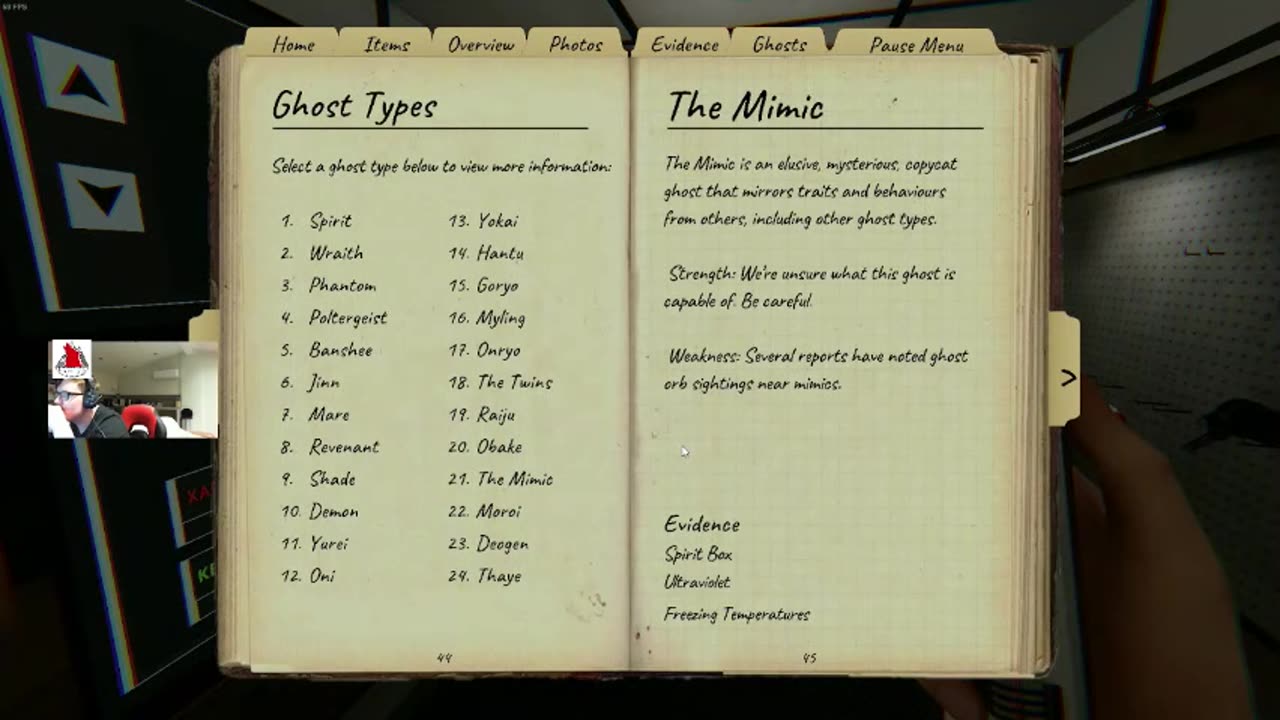 Home Items Overview Photos Evidence Ghosts Pause Menu
Ghost Types
Select a ghost type below to view more information:
1. Spirit
2. Wraith
3. Phantom
4. Poltergeist
5. Banshee
6. Jinn
7. Mare
8. Revenant
9. Shade
10. Demon
11. Yurei
12. Oni
13. Yokai
14. Hantu
15. Goryo
16. Myling
17. Onryo
18. The Twins
19. Raiju
20. Obake
21. The Mimic
22. Moroi
23. Deogen
24. Thaye
44
The Mimic
The Mimic is an elusive, mysterious, copycat
ghost that mirrors traits and behaviours
from others, including other ghost types.
Strength: We're unsure what this ghost is
capable of. Be careful.
Weakness: Several reports have noted ghost
orb sightings near mimics.
Evidence
Spirit Box
Ultraviolet
Freezing Temperatures
45
>